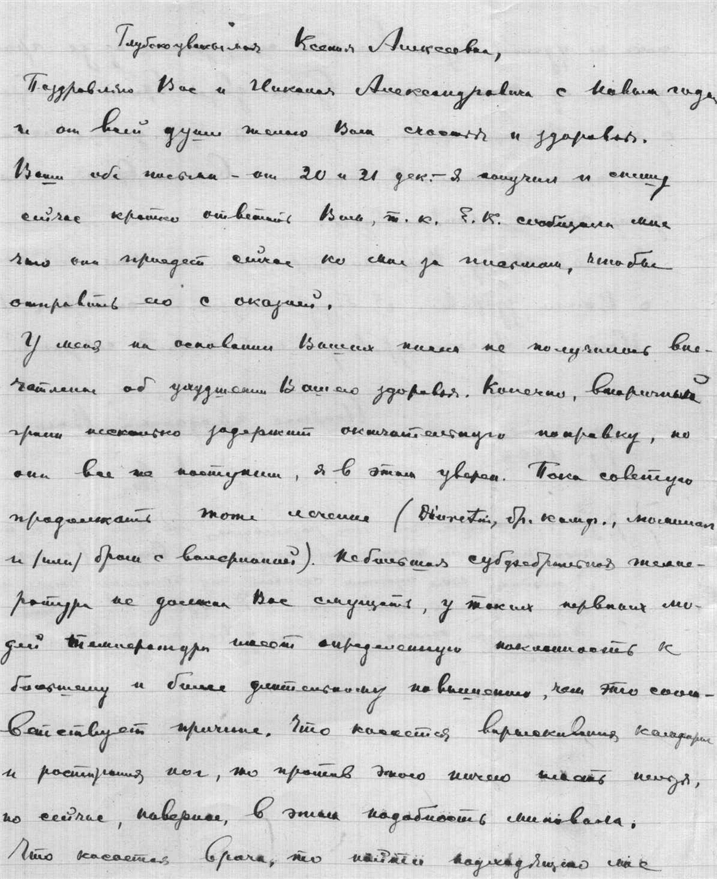 Глубокоуважаемая Ксения Алексеевна,
Поздравляю Вас и Николая Александровича с новым годом
и от всей души желаю Вам счастья и здоровья.
Ваши оба письма – от 20 и 21 дек. – я получил и спешу
сейчас кратко ответить Вам, т. к. Е. К. сообщила мне
что она приедет сейчас ко мне за письмом, чтобы
отправить его с оказией.
У меня на основании Ваших писем не получилось впе-
чатления об ухудшении Вашего здоровья. Конечно, вторичный
грипп несколько задержит окончательную поправку, но
она все же наступит, я в этом уверен. Пока советую
продолжать тоже лечение (Diuretin, бр. камф.,
и /или/ бром с валерианой). Небольшая субфебрильная темпе-
ратура не должна Вас смущать, у таких нервных лю-
дей температура имеет определенную наклонность к
большему и более длительному повышению, чем это соот-
ветствует причине. Что касается впрыскивания камфары
и растирания ног, то против этого ничего иметь нельзя,
но сейчас, наверное, в этом надобность миновала.
Что касается врача, то найти подходящего мне